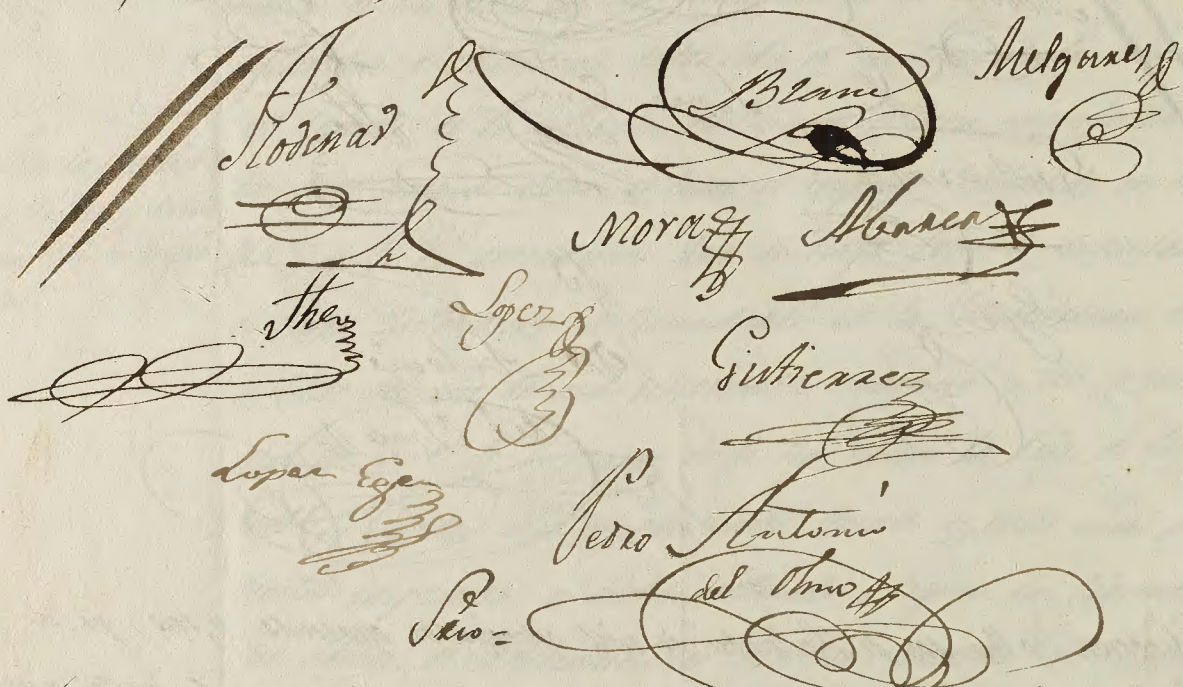 Rodenas
Blanc
Melgares
Mora
Abarca
The
Lopez
Gutierrez
Lopez Egea
Pedro Antonio
del Olmo
Srio=